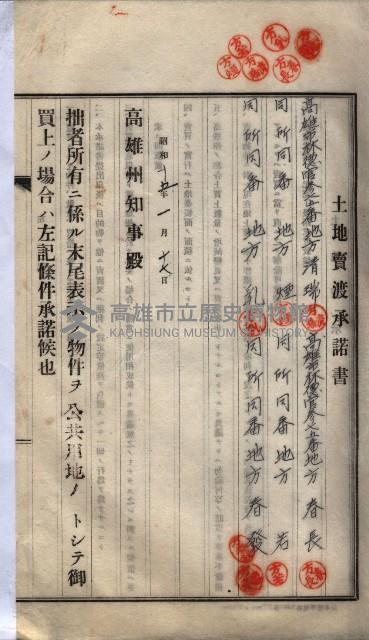 土地賣渡承諾書
高雄市林德官參之五番地方清瑞 高雄市林德官參之五番地方春長
同所同番地方煙 同所同番地方岩
同所同番地方乳 同所同番地方春發
昭和十五年一月十七日
高雄州知事殿
拙者所有ニ係ル末尾表示ノ物件ヲ公共用地ノトシテ御
買上ノ場合ハ左記條件承諾候也
高雄市立歷史博物館
KAOHSIUNG MUSEUM OF HISTORY